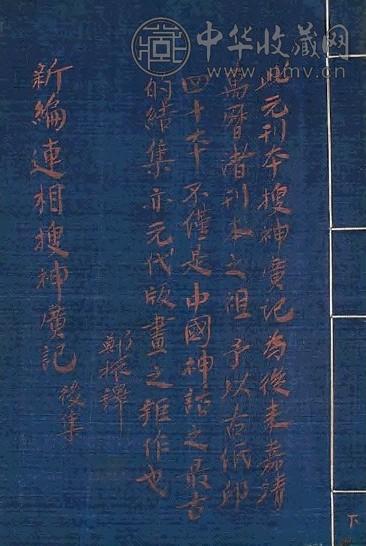 中华收藏网
www.pmv.cn
此元刊本搜神廣記為後来嘉靖
萬曆諸刊本之祖予以古纸印
四十本不僅是中國神話之最古
的結集亦元代版畫之鉅作也
鄭振鐸
新編連相搜神廣記後集
下